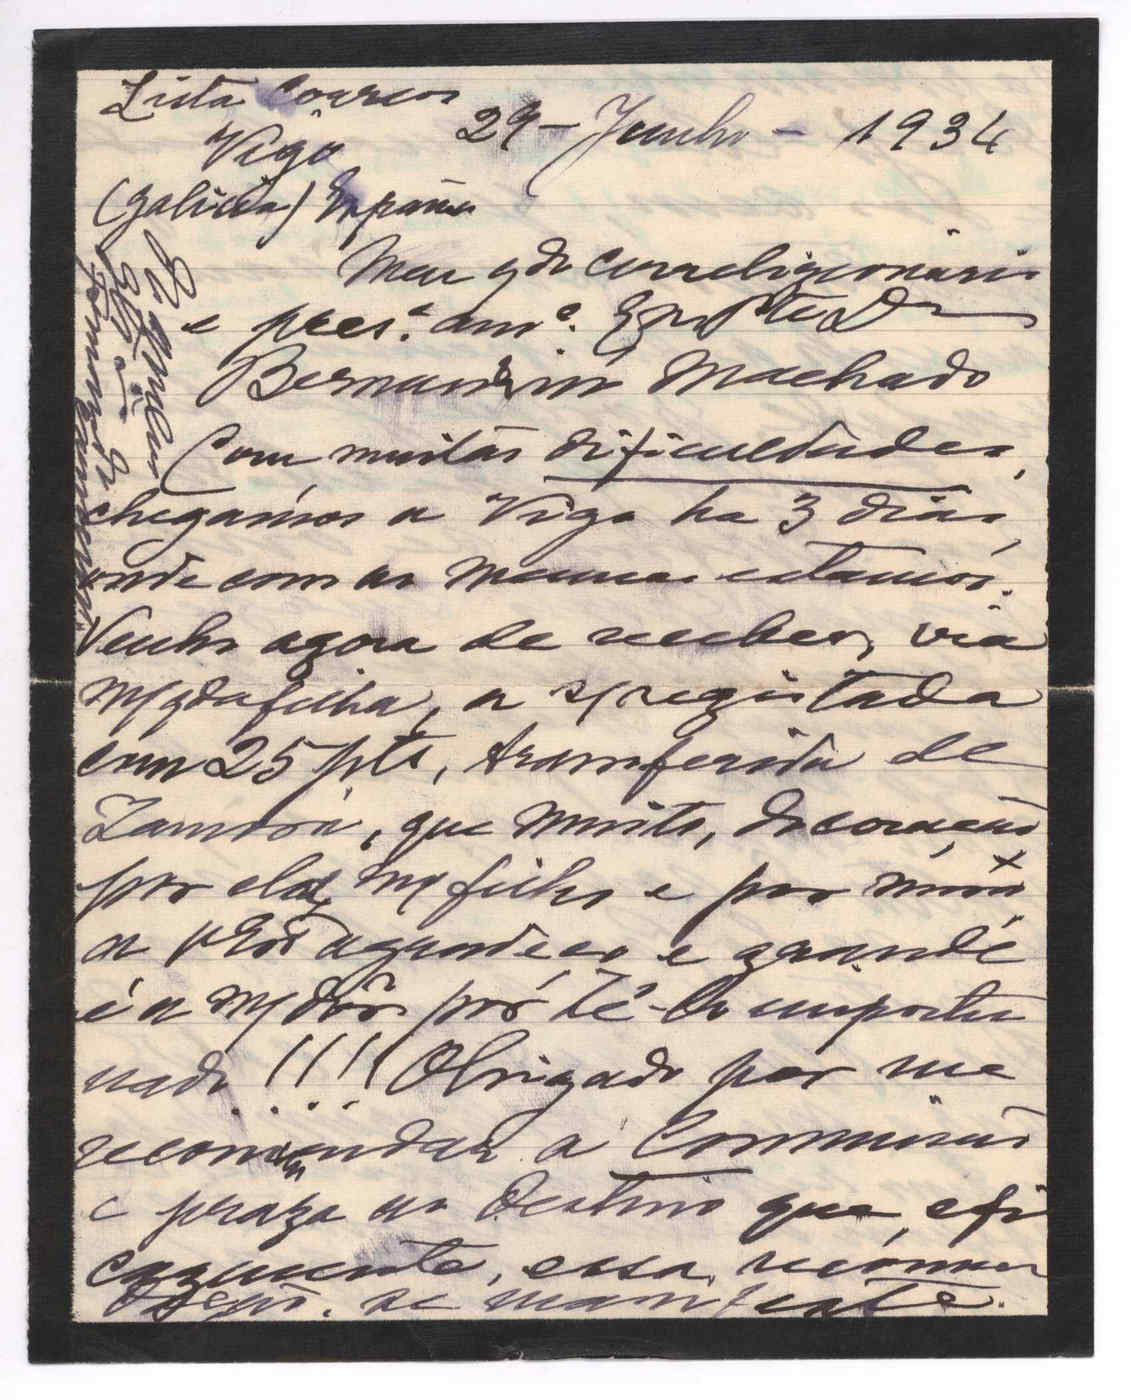 Lista Correos
Vigo 29 - Junho - 1934
(Galicia) España
Meu qdo correligionario
e pres.º am.º Exmº Sr. Dr
Bernardino Machado
Com muitas dificuldades,
chegámos a Vigo ha 3 dias,
onde com as manas estamos.
Venho agora de receber, via
m/qda filha, a s/registada
com 25 pts, transferida de
Zamora, que muito, do coração
por ela, m/ filho e por mim
a V. Exª agradeço e grande
é a m/ dôr por tê-lo importu
nado !!!! Obrigado por me
recomendar á Commissão
e praza ao Destino que, efi
cazmente, essa recomen
dação se manifeste.